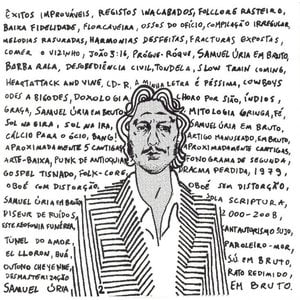 ÊXITOS IMPROVÁVEIS, REGISTOS INACABADOS, FOLCLORE RASTEIRO,
BAIXA FIDELIDADE, FLORCAVEIRA, OSSOS DO OFÍCIO, COMPILAÇÃO IRREGULAR,
MELODIAS RASURADAS, HARMONIAS DESFEITAS, FRACTURAS EXPOSTAS,
COMER O VIZINHO, JOÃO 3:16, SAMUEL ÚRIA EM BRUTO,
BARBA RALA, DESOBEDIÊNCIA CIVIL, TONDELA, SLOW TRAIN COMING,
HEARTATTACK AND VINE, CD-R, A MINHA LETRA É PÉSSIMA, COWBOYS
ODES A BIGODES, DOXOLOGIA HORO POR SIÃO, ÍNDIOS,
GRAÇA, SAMUEL ÚRIA EM BRUTO, MITOLOGIA GRINGA, FÉ,
SOL NA EIRA, SOL NA IRA, SAMUEL ÚRIA EM BRUTO,
CÁLCIO PARA O ÓCIO, BANG ARTIGO MANUSEADO, EM BRUTO,
APROXIMADAMENTE 5 CANTIGAS APROXIMADAMENTE CANTIGAS,
ARTE-BAIXA, PUNK DE ANTIOQUIA FONOGRAMA DE SEGUNDA,
GOSPEL TISNADO, FOLK-CORE DRACMA PERDIDA, 1979,
OBOÉ COM DISTORÇÃO, OBOÉ SEM DISTORÇÃO,
SAMUEL ÚRIA EM BRUTO SOLA SCRIPTURA,
DISEUR DE RUÍDOS, 2000-2008,
ESTEREOFONIA FUNÉREA, ANTIAUTORISMO SUJO,
TÚNEL DO AMOR, PAROLEIRO-MOR,
EL LLORON, BUÁ, SÚ EM BRUTO,
OUTONO CHEYENNE, RATO REDIMIDO
DESMASTERIZAÇÃO
SAMUEL ÚRIA, EM BRUTO.